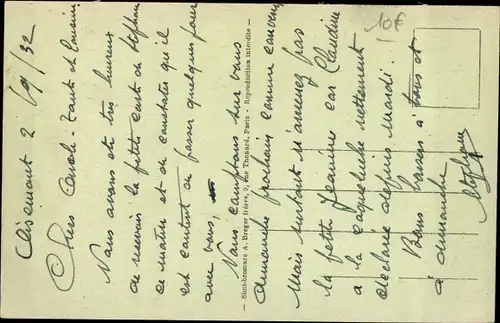 Oisemont 2/9/32
Chers oncle - Tante et Cousine
Nous avons été très heureux
de recevoir la petite carte de Stéphane
ce matin et de constater qu'il
est content de passer quelques jours
avec vous,
Nous comptons sur vous
dimanche prochain comme convenu
Mais surtout n'amenez pas
la petite Jeanine car Claudine
a la coqueluche nettement
déclarée depuis mardi.
Bons baisers à tous et
à dimanche
— Simi-bromure A. Breger frères, 9, rue Thénard, Paris - Reproduction interdite —
10F